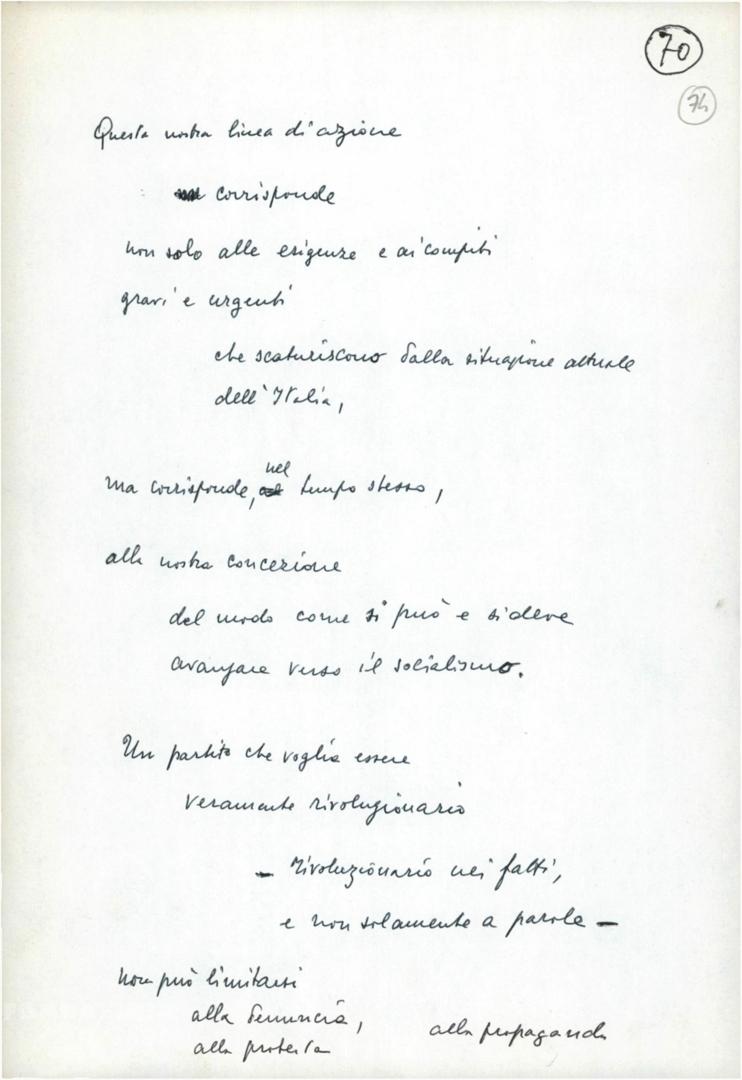 70
74
Questa nostra linea di azione
corrisponde
non solo alle esigenze e ai compiti
gravi e urgenti
che scaturiscono dalla situazione attuale
dell'Italia,
nel
ma corrisponde, tempo stesso,
alla nostra concezione
del modo come si può e si deve
avanzare verso il socialismo.
Un partito che voglia essere
veramente rivoluzionario
– rivoluzionario nei fatti,
e non solamente a parole –
non può limitarsi
alla denuncia, alla propaganda
alla protesta